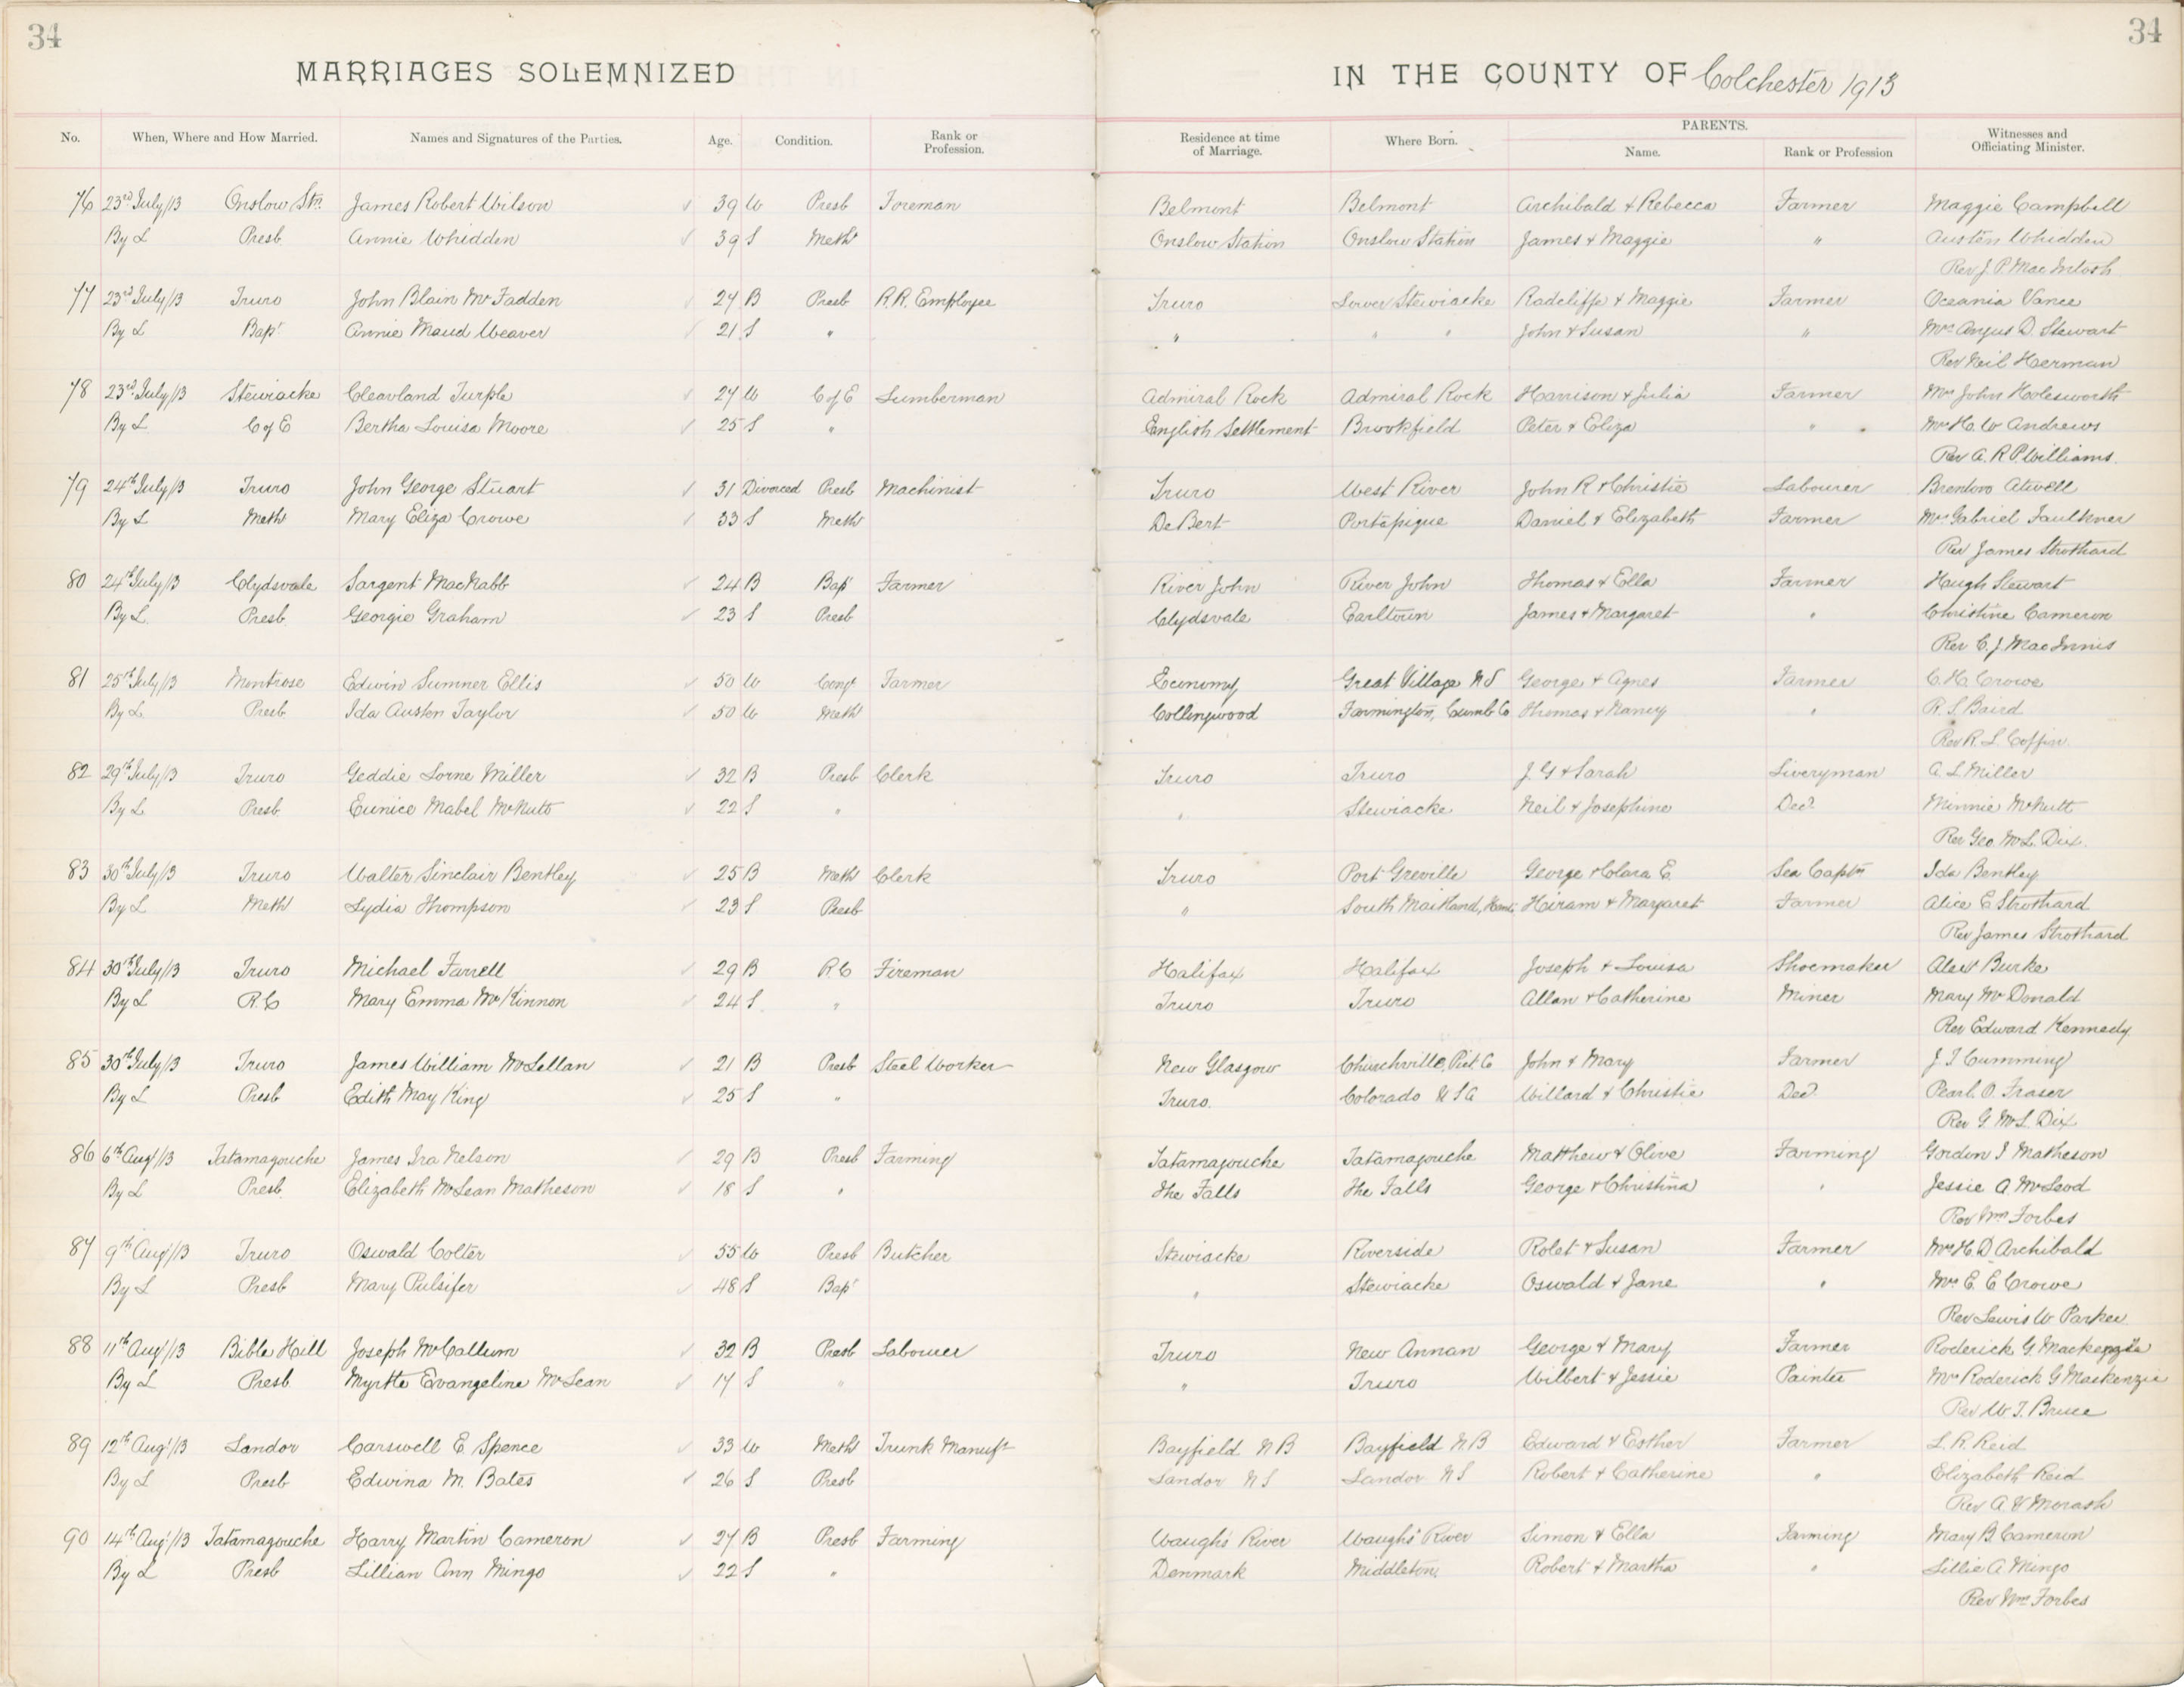 34
34
MARRIAGES SOLEMNIZED IN THE COUNTY OF Colchester 1913
No. When, Where and How Married. Names and Signatures of the Parties. Age. Condition. Rank or Profession. Residence at time of Marriage. Where Born. PARENTS. Name. Rank or Profession Witnesses and Officiating Minister.
76 23rd July/13 Onslow Stn. James Robert Wilson ✓ 39 W Presb Foreman Belmont Belmont Archibald & Rebecca Farmer Maggie Campbell
By L Presb Annie Whidden ✓ 39 S Meth Onslow Station Onslow Station James & Maggie " Austen Whidden
Rev J. P. MacIntosh
77 23rd July/13 Truro John Blain McFadden ✓ 27 B Presb R.R. Employee Truro Lower Stewiacke Radcliffe & Maggie Farmer Oceania Vance
By L Bapt Annie Maud Weaver ✓ 21 S " " " " John & Susan " Mrs Angus D. Stewart
Rev Neil Herman
78 23rd July/13 Stewiacke Cleavland Turple ✓ 27 W C of E Lumberman Admiral Rock Admiral Rock Harrison & Julia Farmer Mrs John Holesworth
By L C of E Bertha Louisa Moore ✓ 25 S " English Settlement Brookfield Peter & Eliza " Mrs H. W Andrews
Rev A. R P Williams.
79 24th July/13 Truro John George Stuart ✓ 31 Divorced Presb Machinist Truro West River John R & Christie Labourer Brenton Atwell
By L Meth Mary Eliza Crowe ✓ 33 S Meth De Bert Portapique Daniel & Elizabeth Farmer Mrs Gabriel Faulkner
Rev James Strothard
80 24th July/13 Clydsvale Sargent MacNabb ✓ 24 B Bapt Farmer River John River John Thomas & Ella Farmer Hugh Stewart
By L Presb Georgie Graham ✓ 23 S Presb Clydsvale Earltown James & Margaret " Christine Cameron
Rev C. J. MacInnis
81 25th July/13 Montrose Edwin Sumner Ellis ✓ 50 W Congt Farmer Economy Great Village N S George & Agnes Farmer C. H. Crowe
By L Presb Ida Austen Taylor ✓ 50 W Meth Collingwood Farmington, Cumb Co Thomas & Nancy " R. S. Baird
Rev R. L. Coffin
82 29th July/13 Truro Geddie Lorne Miller ✓ 32 B Presb Clerk Truro Truro J. G & Sarah Liveryman A. L. Miller
By L Presb Eunice Mabel McNutt ✓ 22 S " " Stewiacke Neil & Josephine Decd Minnie McNutt
Rev Geo. McL. Dix.
83 30th July/13 Truro Walter Sinclair Bentley ✓ 25 B Meth Clerk Truro Port Greville George & Clara E. Sea Captn Ida Bentley
By L Meth Lydia Thompson ✓ 23 S Presb " South Maitland, Hants, Hiram & Margaret Farmer Alice E Strothard
Rev James Strothard
84 30th July/13 Truro Michael Farrell ✓ 29 B R C Fireman Halifax Halifax Joseph & Louisa Shoemaker Alex Burke
By L R. C Mary Emma McKinnon ✓ 24 S " Truro Truro Allan & Catherine Miner Mary McDonald
Rev Edward Kennedy
85 30th July/13 Truro James William McLellan ✓ 21 B Presb Steel Worker New Glasgow Churchville, Pict. Co John & Mary Farmer J. I Cumming
By L Presb Edith May King ✓ 25 S " Truro. Colorado U S A Willard & Christie Decd Pearl. O. Fraser
Rev G. McL Dix
86 6th Augt/13 Tatamagouche James Ira Nelson ✓ 29 B Presb Farming Tatamagouche Tatamagouche Matthew & Olive Farming Gordon I Matheson
By L Presb Elizabeth McLean Matheson ✓ 18 S " The Falls The Falls George & Christina " Jessie A. McLeod
Rev Wm Forbes
87 9th Augt/13 Truro Oswald Colter ✓ 55 W Presb Butcher Stewiacke Riverside Rolet & Susan Farmer Mrs H. D Archibald
By L Presb Mary Pulsifer ✓ 48 S Bapt " Stewiacke Oswald & Jane " Mrs E. E Crowe
Rev Lewis W Parker
88 11th Augt/13 Bible Hill Joseph McCallum ✓ 32 B Presb Labourer Truro New Annan George & Mary Farmer Roderick G. Mackenzie
By L Presb Myrtle Evangeline McLean ✓ 17 S " " Truro Wilbert & Jessie Painter Mrs Roderick G Mackenzie
Rev W. T. Bruce
89 12th Augt/13 Landor Carswell E. Spence ✓ 33 W Meth Trunk Manuft Bayfield N B Bayfield N. B Edward & Esther Farmer L. R. Reid
By L Presb Edwina M. Bates ✓ 26 S Presb Landor N S Landor N S Robert & Catherine " Elizabeth Reid
Rev A. V Morash
90 14th Augt/13 Tatamagouche Harry Martin Cameron ✓ 27 B Presb Farming Waugh's River Waugh's River Simon & Ella Farming Mary B. Cameron
By L Presb Lillian Ann Mingo ✓ 22 S " Denmark Middleton, Robert & Martha " Lillie A. Mingo
Rev Wm Forbes